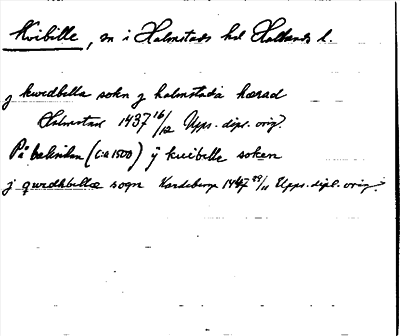 Kvibille, sn i Halmstads hd Hallands l.
j kwidbilla sokn j halmstada hærad
Halmstad 1437 16/12 Upps. dipl. orig.
På baksidan (c:a 1500) ÿ kuibelle soken
j qwedhbillæ sogn Vardeberg 1447 29/11 Upps. dipl. orig.